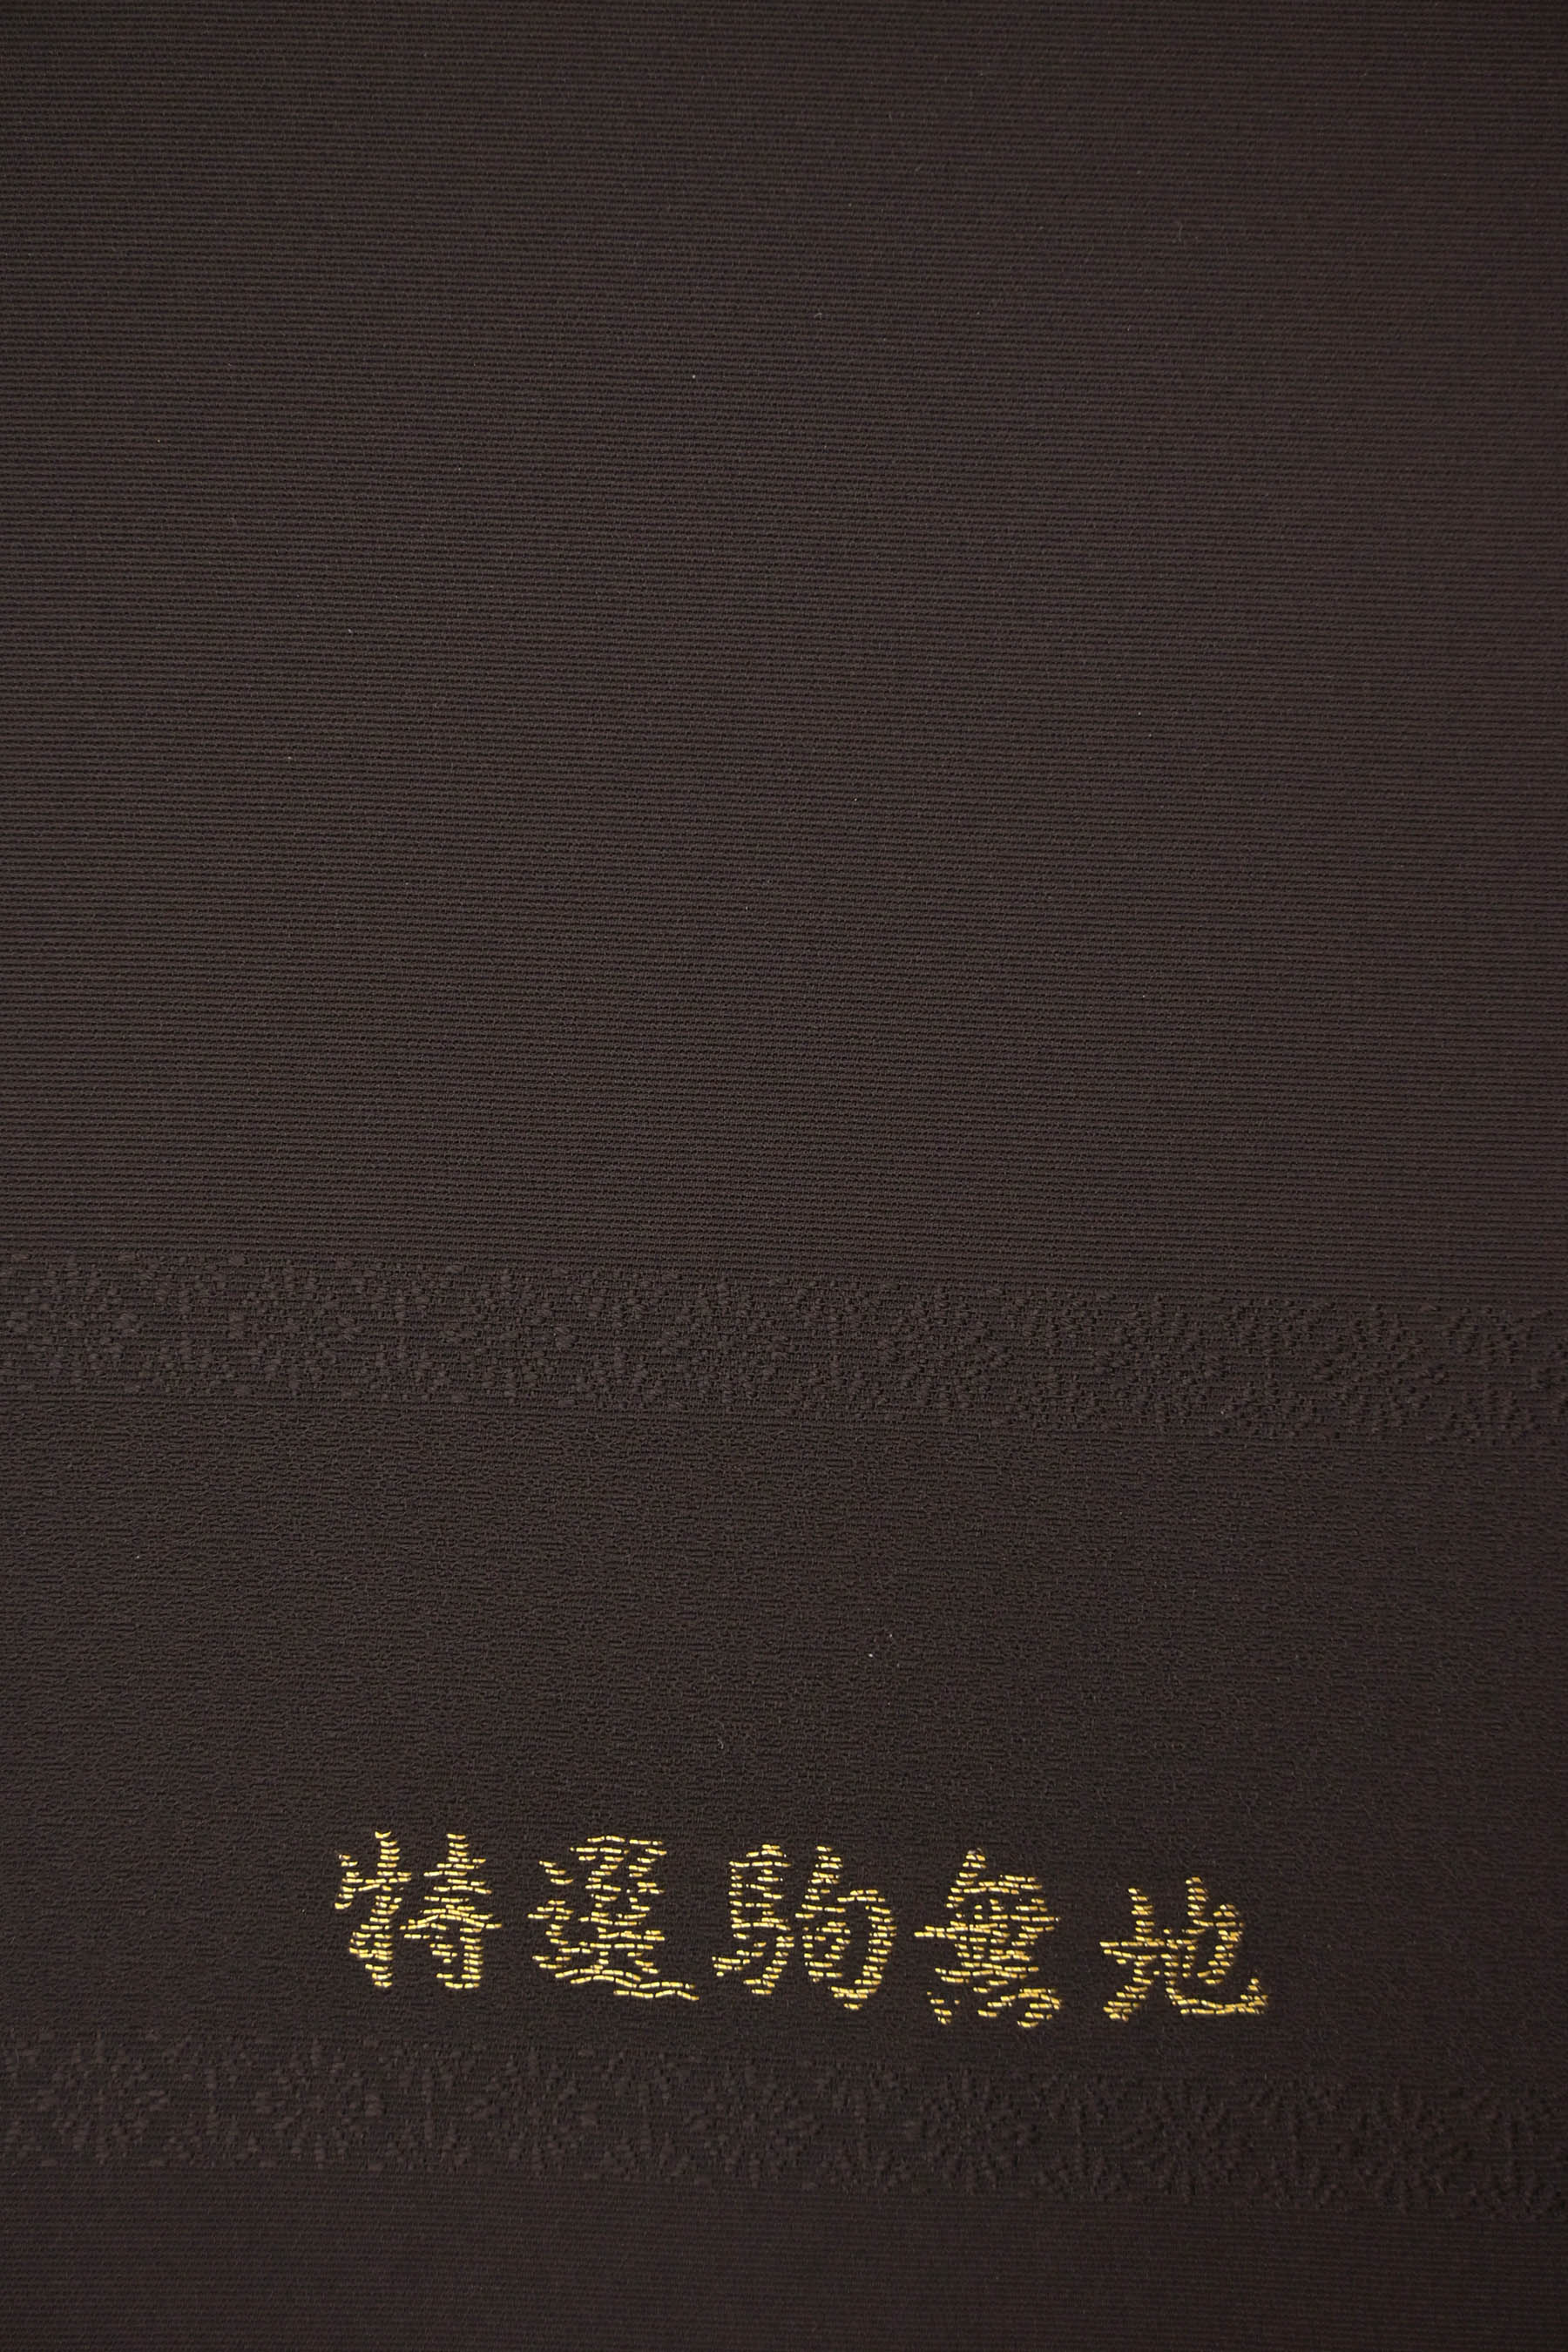 特選駒無地